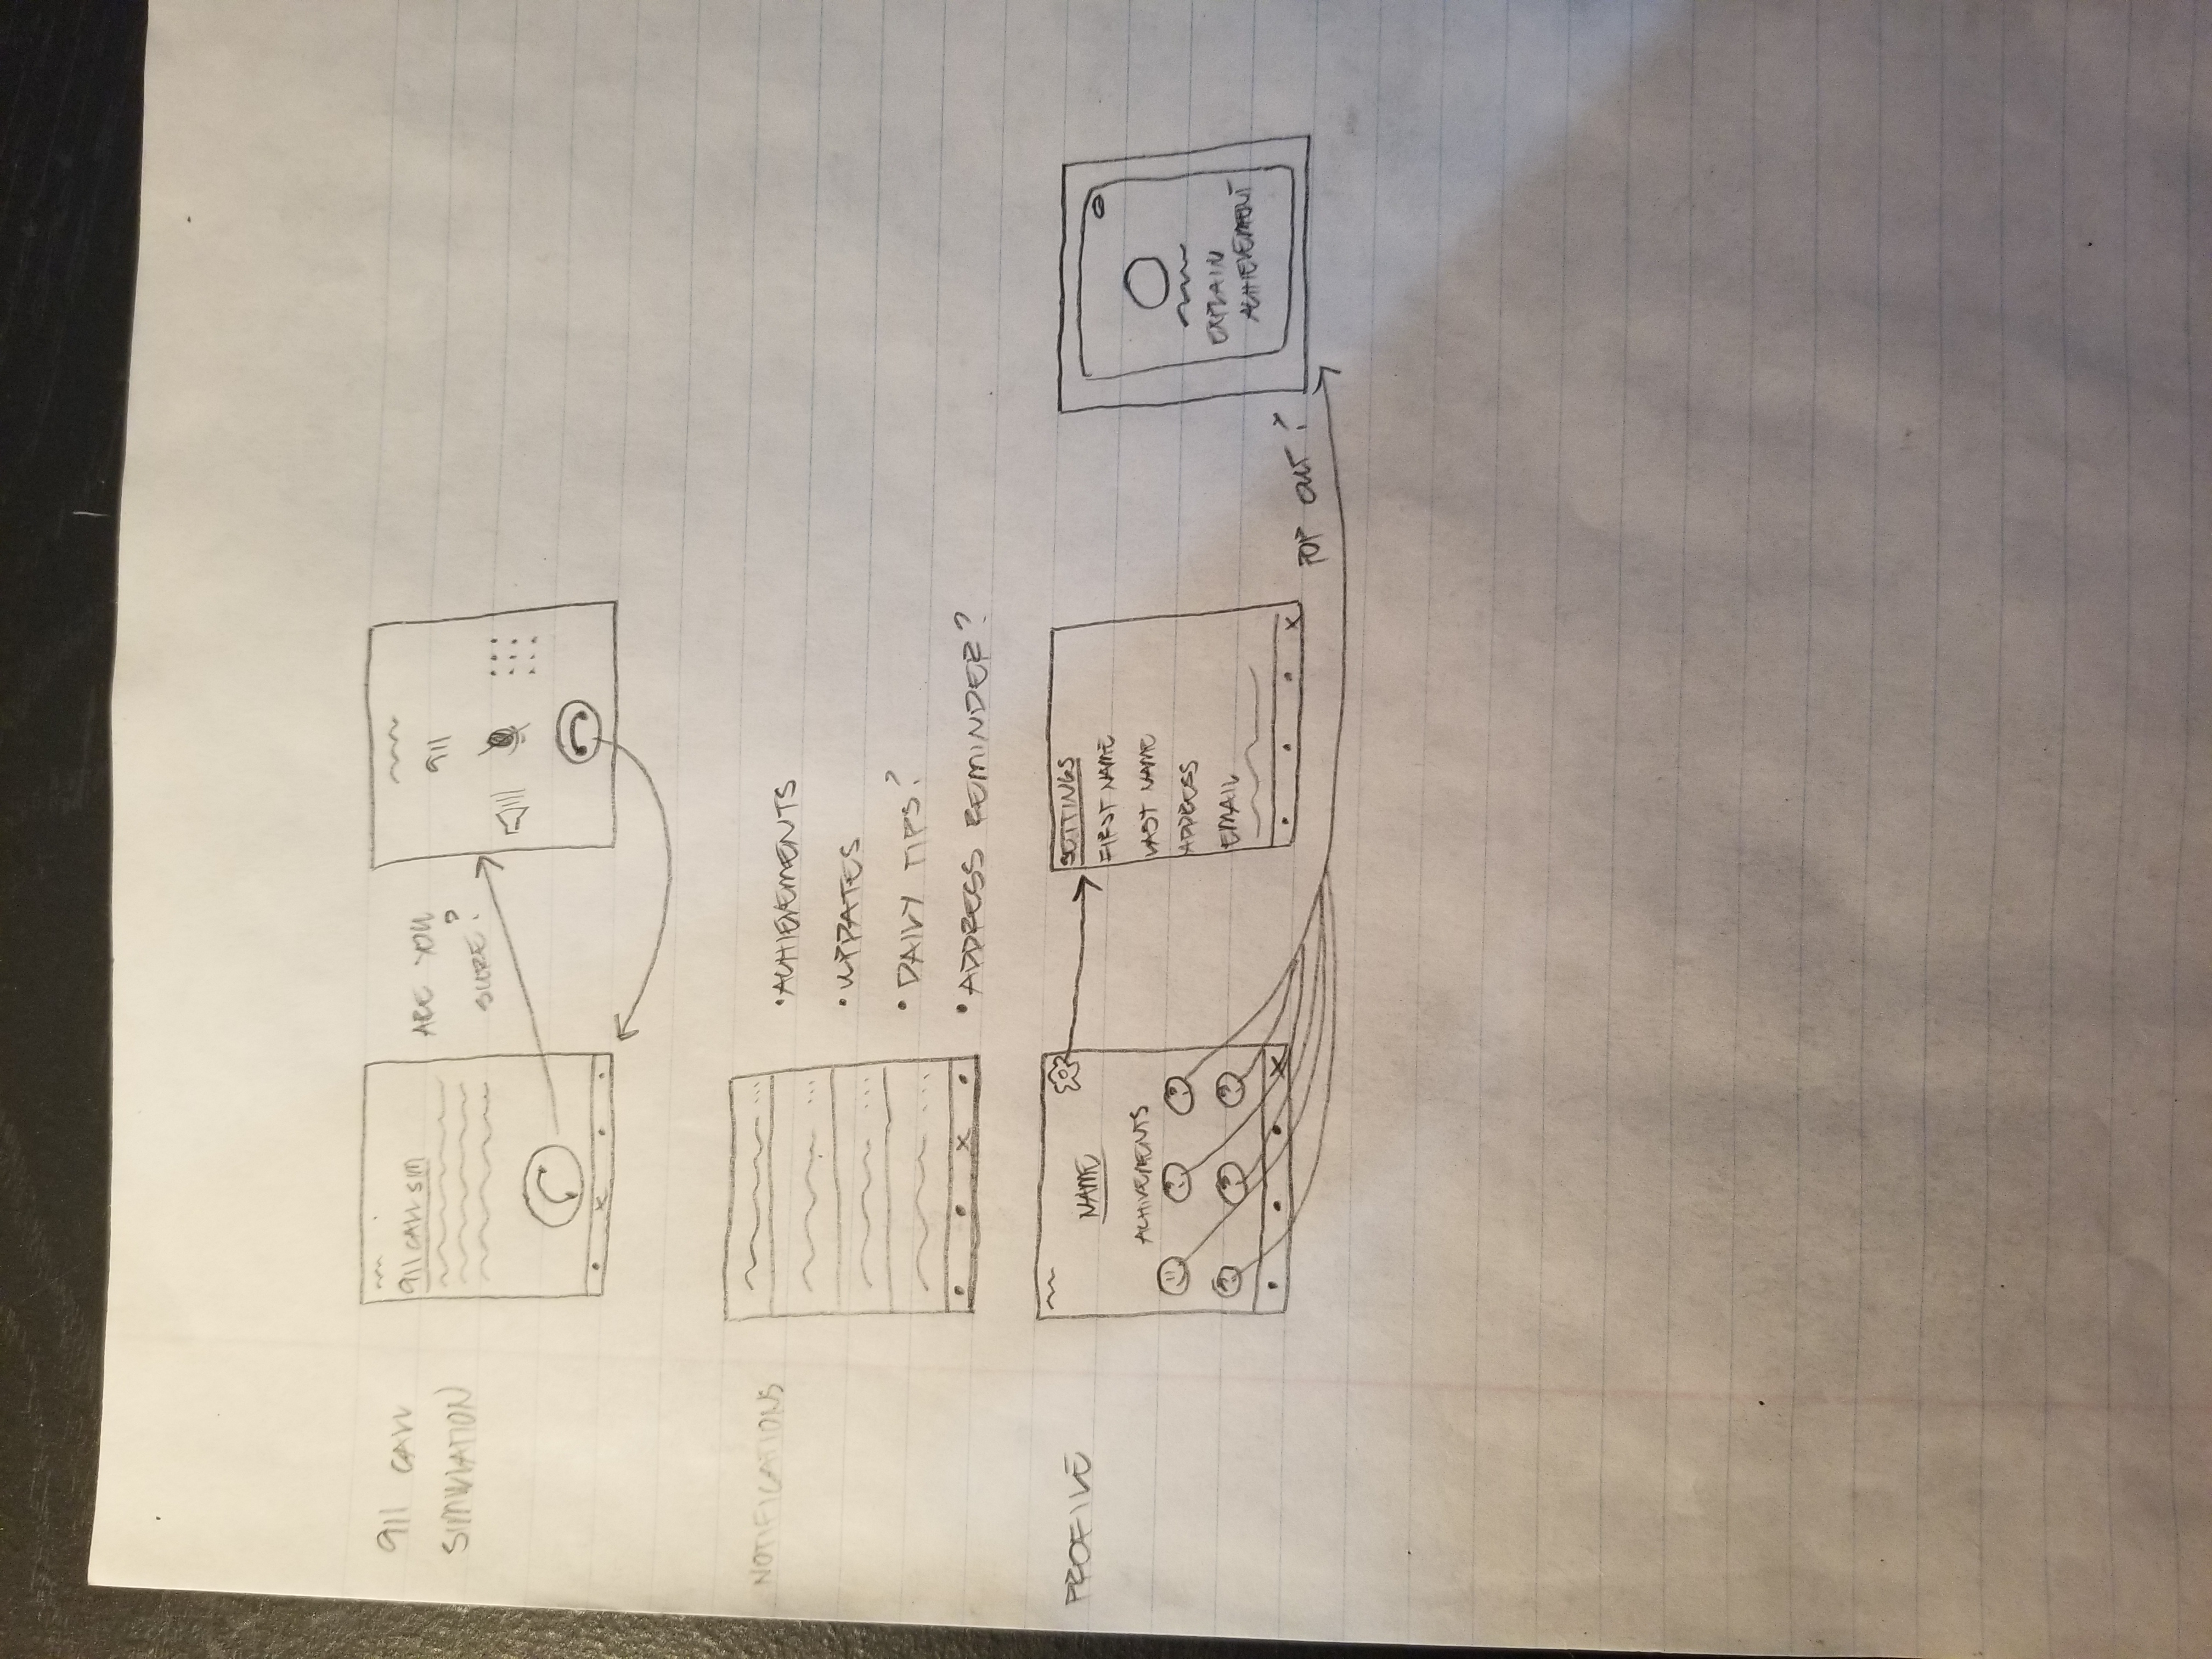 911 CALL
SIMULATION
911 CALL SIM
ARE YOU
SURE?
911
NOTIFICATIONS
• ACHIEVEMENTS
• UPDATES
• DAILY TIPS?
• ADDRESS REMINDER?
PROFILE
NAME
ACHIVEMENTS
SETTINGS
FIRST NAME
LAST NAME
ADDRESS
EMAIL
POP OUT?
EXPLAIN
ACHIEVEMENT